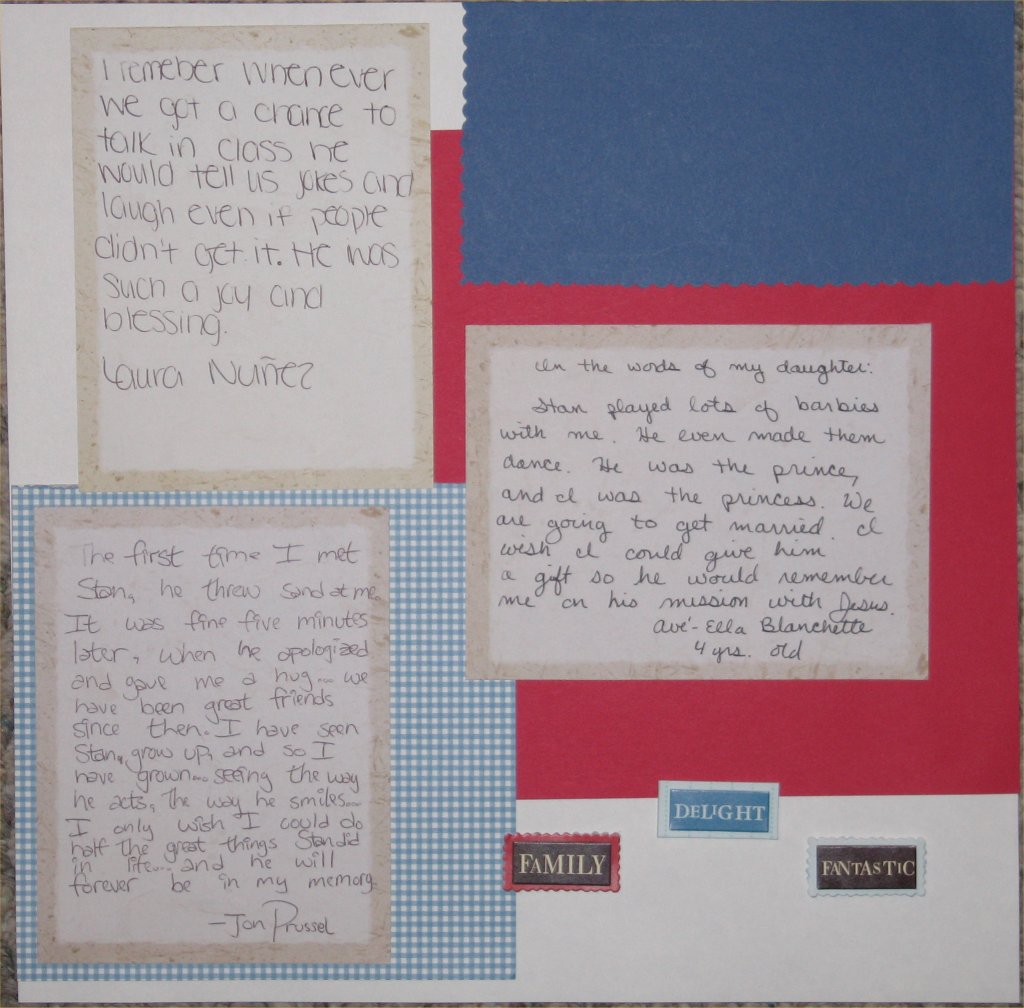 I remeber when ever
we got a chance to
talk in class he
would tell us jokes and
laugh even if people
didn't get it. He was
such a joy and
blessing.
Laura Nuñez
In the words of my daughter:
Stan played lots of barbies
with me. He even made them
dance. He was the prince,
and I was the princess. We
are going to get married. I
wish I could give him
a gift so he would remember
me on his mission with Jesus.
Avé-Ella Blanchette
4 yrs. old
The first time I met
Stan, he threw sand at me.
It was fine five minutes
later, when he apologized
and gave me a hug... we
have been great friends
since then. I have seen
Stan, grow up, and so I
have grown... seeing the way
he acts, the way he smiles...
I only wish I could do
half the great things Stan did
in life... and he will
forever be in my memory
-Jon Prussel
DELIGHT
FAMILY
FANTASTIC